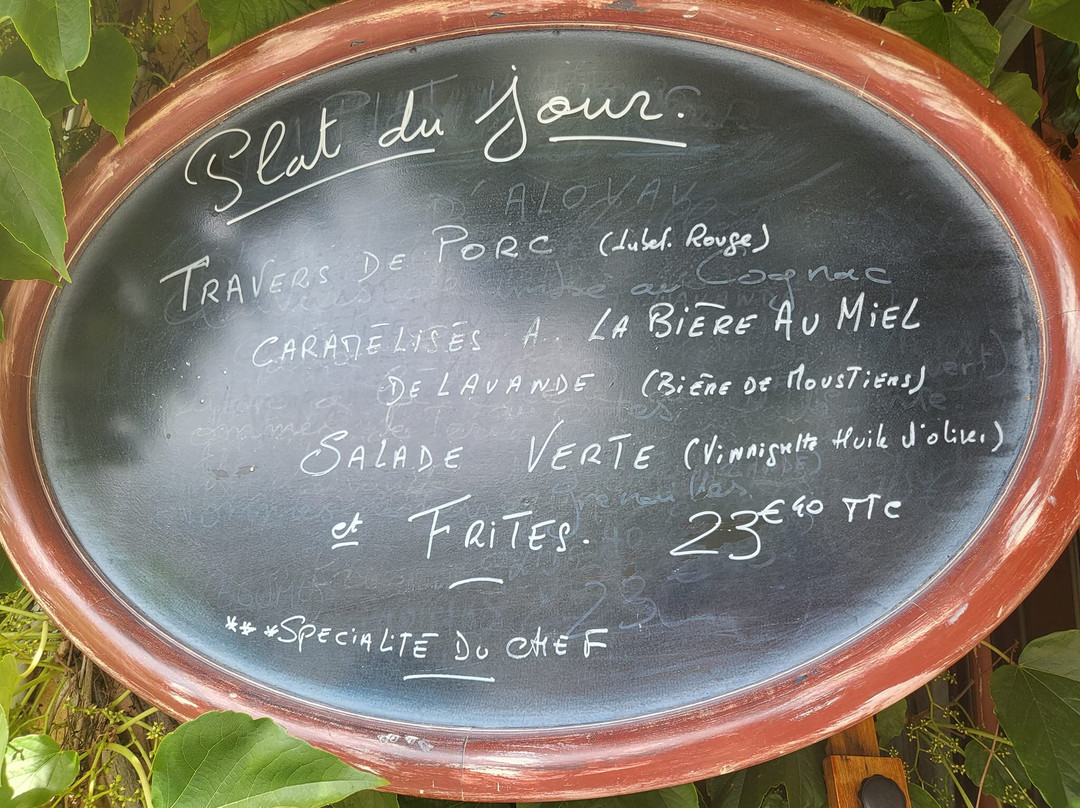 Plat du jour.
TRAVERS DE PORC (Label. Rouge)
CARAMELISES A.. LA BIÈRE AU MIEL
DE LAVANDE (BIÈRE DE MOUSTIERS)
SALADE VERTE (Vinnigrette Huile d'olive.)
et FRITES. 23€40 TTC
***SPECIALITÉ DU CHEF